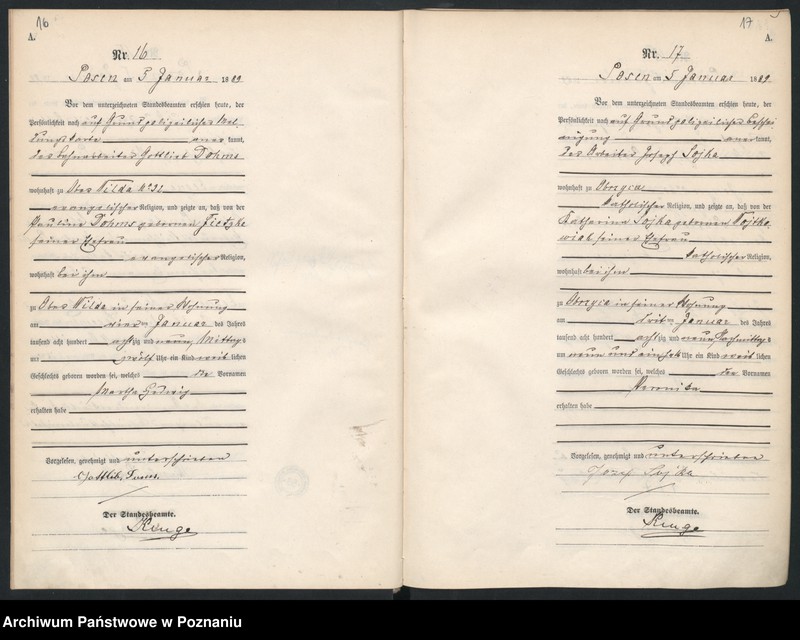 16
A.
Nr. 16
Posen am 5 Januar 1889
Vor dem unterzeichneten Standesbeamten erschien heute, der
Persönlichkeit nach auf Grund polizeilicher Mel-
dungskarte anerkannt,
der Bahnarbeiter Gottlieb Dohms
wohnhaft zu Ober Wilda No 31
evangelischer Religion, und zeigte an, daß von der
Pauline Dohms geborenen Fietzke
seiner Ehefrau
evangelischer Religion,
wohnhaft bei ihm
zu Ober Wilda in seiner Wohnung
am vierten Januar des Jahres
tausend acht hundert achtzig und neun Mittags
um zwölf Uhr ein Kind weiblichen
Geschlechts geboren worden sei, welches die Vornamen
Martha Hedwig
erhalten habe
Vorgelesen, genehmigt und unterschrieben
Gottlieb
Der Standesbeamte.
Runge
17
A.
Nr. 17
Posen am 5 Januar 1889
Vor dem unterzeichneten Standesbeamten erschien heute, der
Persönlichkeit nach auf Grund polizeilicher Beschei-
nigung anerkannt,
der Arbeiter Joseph Sojka
wohnhaft zu
katholischer Religion, und zeigte an, daß von der
Katharina Sojka geborenen Wojtko-
wiak seiner Ehefrau
katholischer Religion,
wohnhaft bei ihm
zu in seiner Wohnung
am dritten Januar des Jahres
tausend acht hundert achtzig und neun Nachmittags
um neun und einhalb Uhr ein Kind weiblichen
Geschlechts geboren worden sei, welches den Vornamen
Veronika
erhalten habe
Vorgelesen, genehmigt und unterschrieben
Jozef Sojka
Der Standesbeamte.
Runge
Archiwum Państwowe w Poznaniu